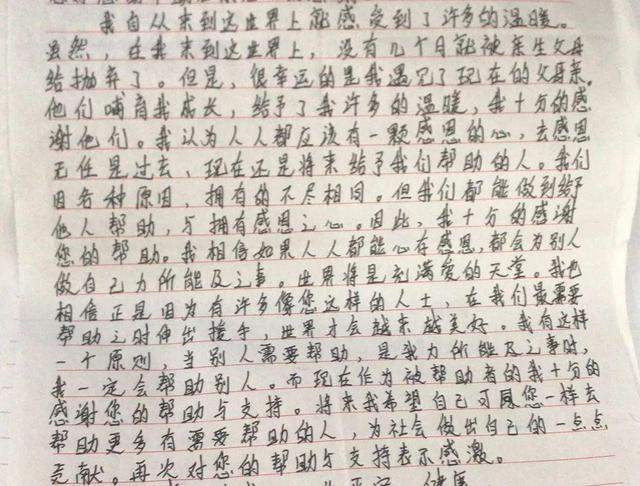 我自从来到这世界上就感受到了许多的温暖。
虽然，在我来到这世界上，没有几个月就被亲生父母
给抛弃了。但是，很幸运的是我遇见了现在的父母亲。
他们哺育我成长，给予了我许多的温暖，我十分的感
谢他们。我认为人人都应该有一颗感恩的心，去感恩
无任是过去、现在还是将来给予我们帮助的人。我们
因各种原因，拥有的不尽相同。但我们都能做到给予
他人帮助，与拥有感恩之心。因此，我十分的感谢
您的帮助。我相信如果人人都能心存感恩，都会为别人
做自己力所能及之事。世界将是充满爱的天堂。我也
相信正是因为有许多像您这样的人士，在我们最需要
帮助之时伸出援手，世界才会越来越美好。我有这样
一个原则，当别人需要帮助，是我力所能及之事时，
我一定会帮助别人。而现在作为被帮助者的我十分的
感谢您的帮助与支持。将来我希望自己可同您一样去
帮助更多有需要帮助的人，为社会做出自己的一点点
贡献。再次对您的帮助与支持表示感激。
健康